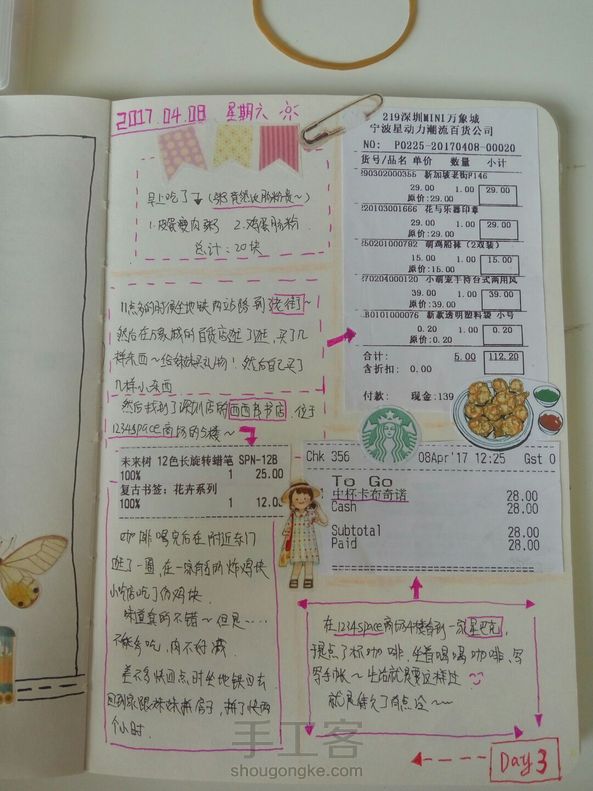 2017.04.08 星期六
早上吃了 (粥竟然比肠粉贵~)
1.皮蛋瘦肉粥 2.鸡蛋肠粉
总计:20块
11点多的时候坐地铁 到了老街~
然后在万象城的百货店逛了逛,买了几
样东西~给妹妹买礼物!然后自己买了
几样小东西
然后找到了深圳店的西西弗书店,位于
1234space商场的5楼~
未来树 12色长旋转蜡笔 SPN-12B
100% 1 25.00
复古书签:花卉系列
100% 1 12.0
咖啡喝完后在附近东门
逛了一圈,在一家有名的炸鸡块
小吃店吃了份鸡块
味道真的不错~但是……
不能多吃,肉不好消
差不多快四点,时坐地铁回去
回到家跟妹妹拆房子,拆了快两
个小时.
219深圳MINI万象城
宁波星动力潮流百货公司
NO: P0225-20170408-00020
货号/品名 单价 数量 小计
69030200035b 新加坡老街P146
29.00 1.00 29.00
原价:29.00
20103001666 花与乐器印章
29.00 1.00 29.00
原价:29.00
50201000782 萌鸡船袜(2双装)
15.00 1.00 15.00
原价:15.00
70204000120 小萌宠手持台式两用风
39.00 1.00 39.00
原价:39.00
B0101000076 新款透明塑料袋 小号
0.20 1.00 0.20
原价:0.20
合计: 5.00 112.20
含折扣: 0.00
付款: 现金:139
Chk 356 08Apr'17 12:25 Gst 0
To Go
中杯卡布奇诺 28.00
Cash 28.00
Subtotal 28.00
Paid 28.00
在1234space商场4楼看到一家星巴克,
便点了杯咖啡,坐着喝喝咖啡,写
写手帐~生活就是要这样过
就是错了有点冷~~
Day 3
手工客
shougongke.com